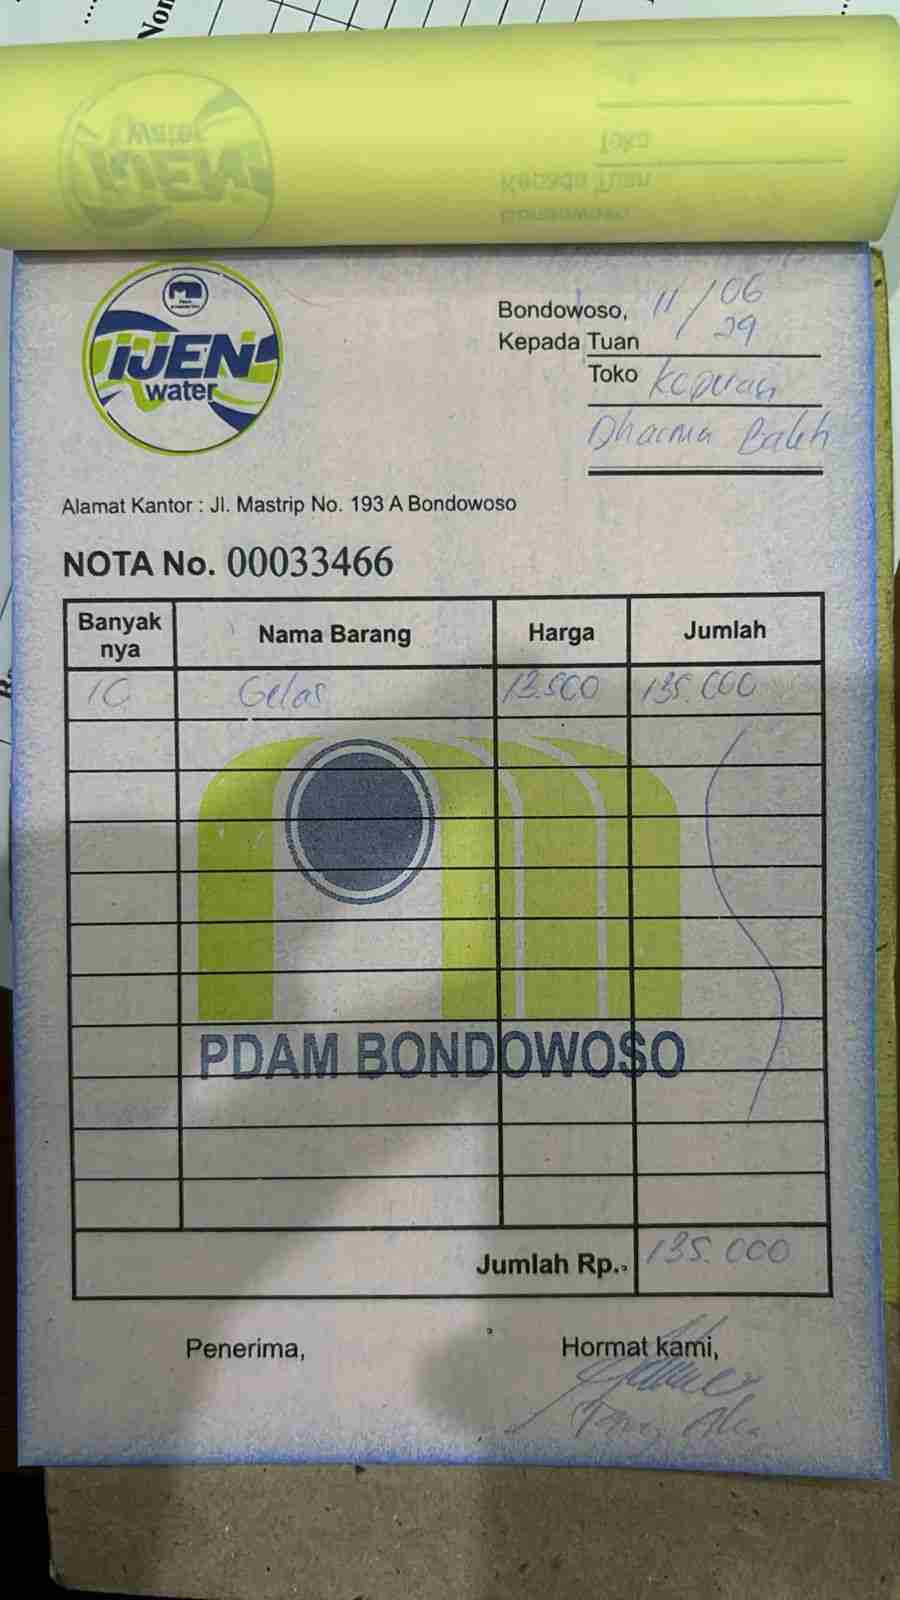 IJEN
water
Bondowoso, 11/06
29
Kepada Tuan
Toko Koperasi
Dharma
Alamat Kantor : Jl. Mastrip No. 193 A Bondowoso
NOTA No. 00033466
Banyak nya Nama Barang Harga Jumlah
10 Gelas 13.500 135.000
PDAM BONDOWOSO
Jumlah Rp. 135.000
Penerima, Hormat kami,